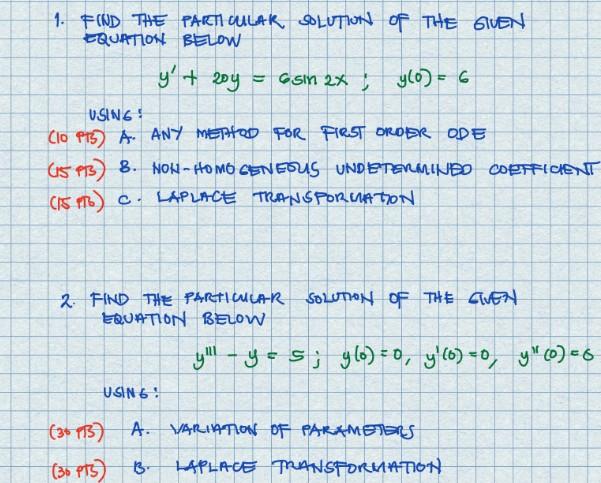 1. FIND THE PARTICULAR SOLUTION OF THE GIVEN
EQUATION BELOW
y' + 20y = 6 sin 2x ; y(0) = 6
USING :
(10 PTS) A. ANY METHOD FOR FIRST ORDER ODE
(15 PTS) B. NON-HOMOGENEOUS UNDETERMINED COEFFICIENT
(15 PTS) C. LAPLACE TRANSFORMATION
2. FIND THE PARTICULAR SOLUTION OF THE GIVEN
EQUATION BELOW
y''' - y = 5 ; y(0) = 0, y'(0) = 0, y''(0) = 6
USING :
(30 PTS) A. VARIATION OF PARAMETERS
(30 PTS) B. LAPLACE TRANSFORMATION